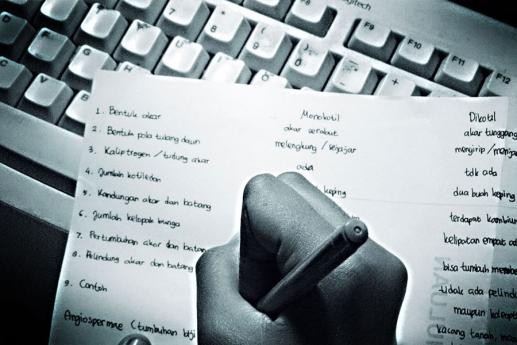 Logitech
F7 F8 F9 F10 F11 F12
Monokotil Dikotil
1. Bentuk akar akar serabut akar tunggang
2. Bentuk pola tulang daun melengkung / sejajar menyirip /
3. Kaliptrogen / tudung akar ada tdk ada
4. Jumlah kotiledon keping dua buah keping
5. Kandungan akar dan batang terdapat kambium
6. Jumlah kelopak bunga kelipatan empat
7. Pertumbuhan akar dan batang bisa tumbuh
8. Pelindung akar dan batang tidak ada
maupun
9. Contoh kacang tanah,
Angiospermae (tumbuhan biji